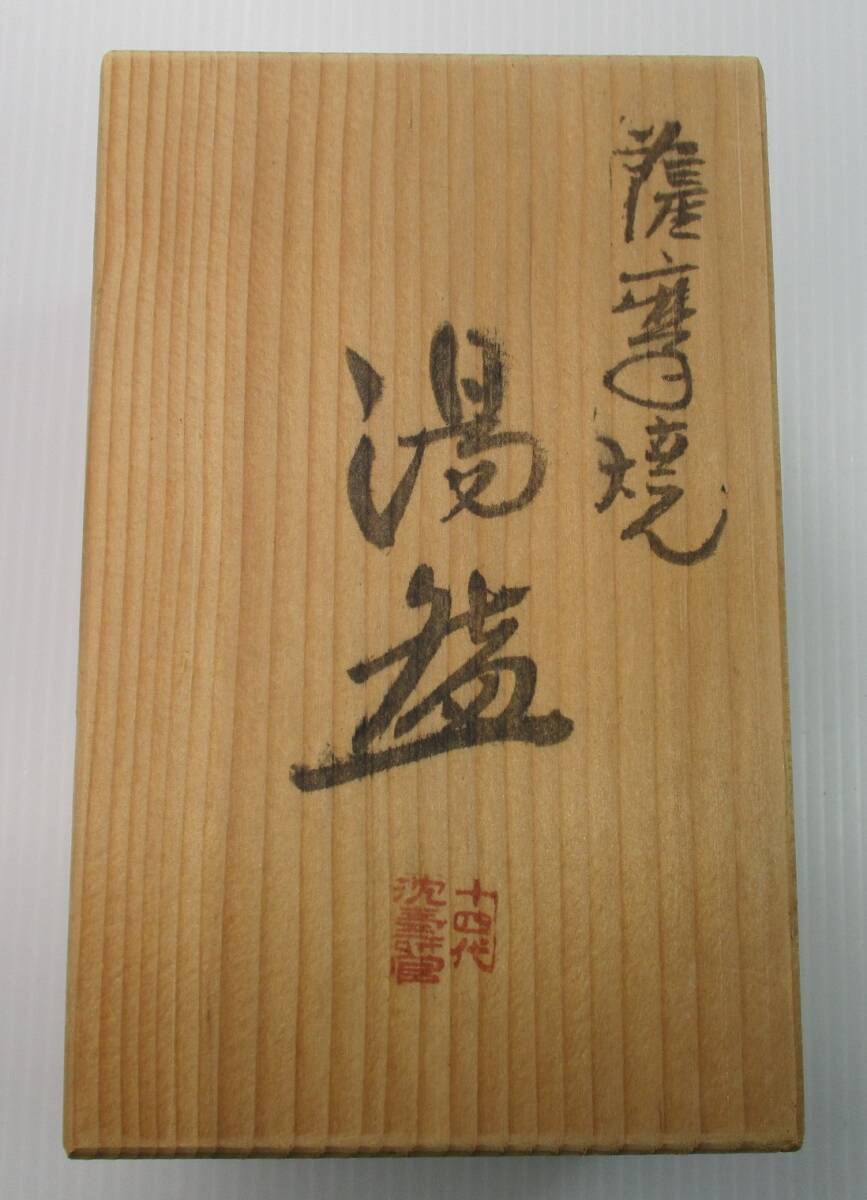 薩摩焼
湯盌
十四代
沈壽官